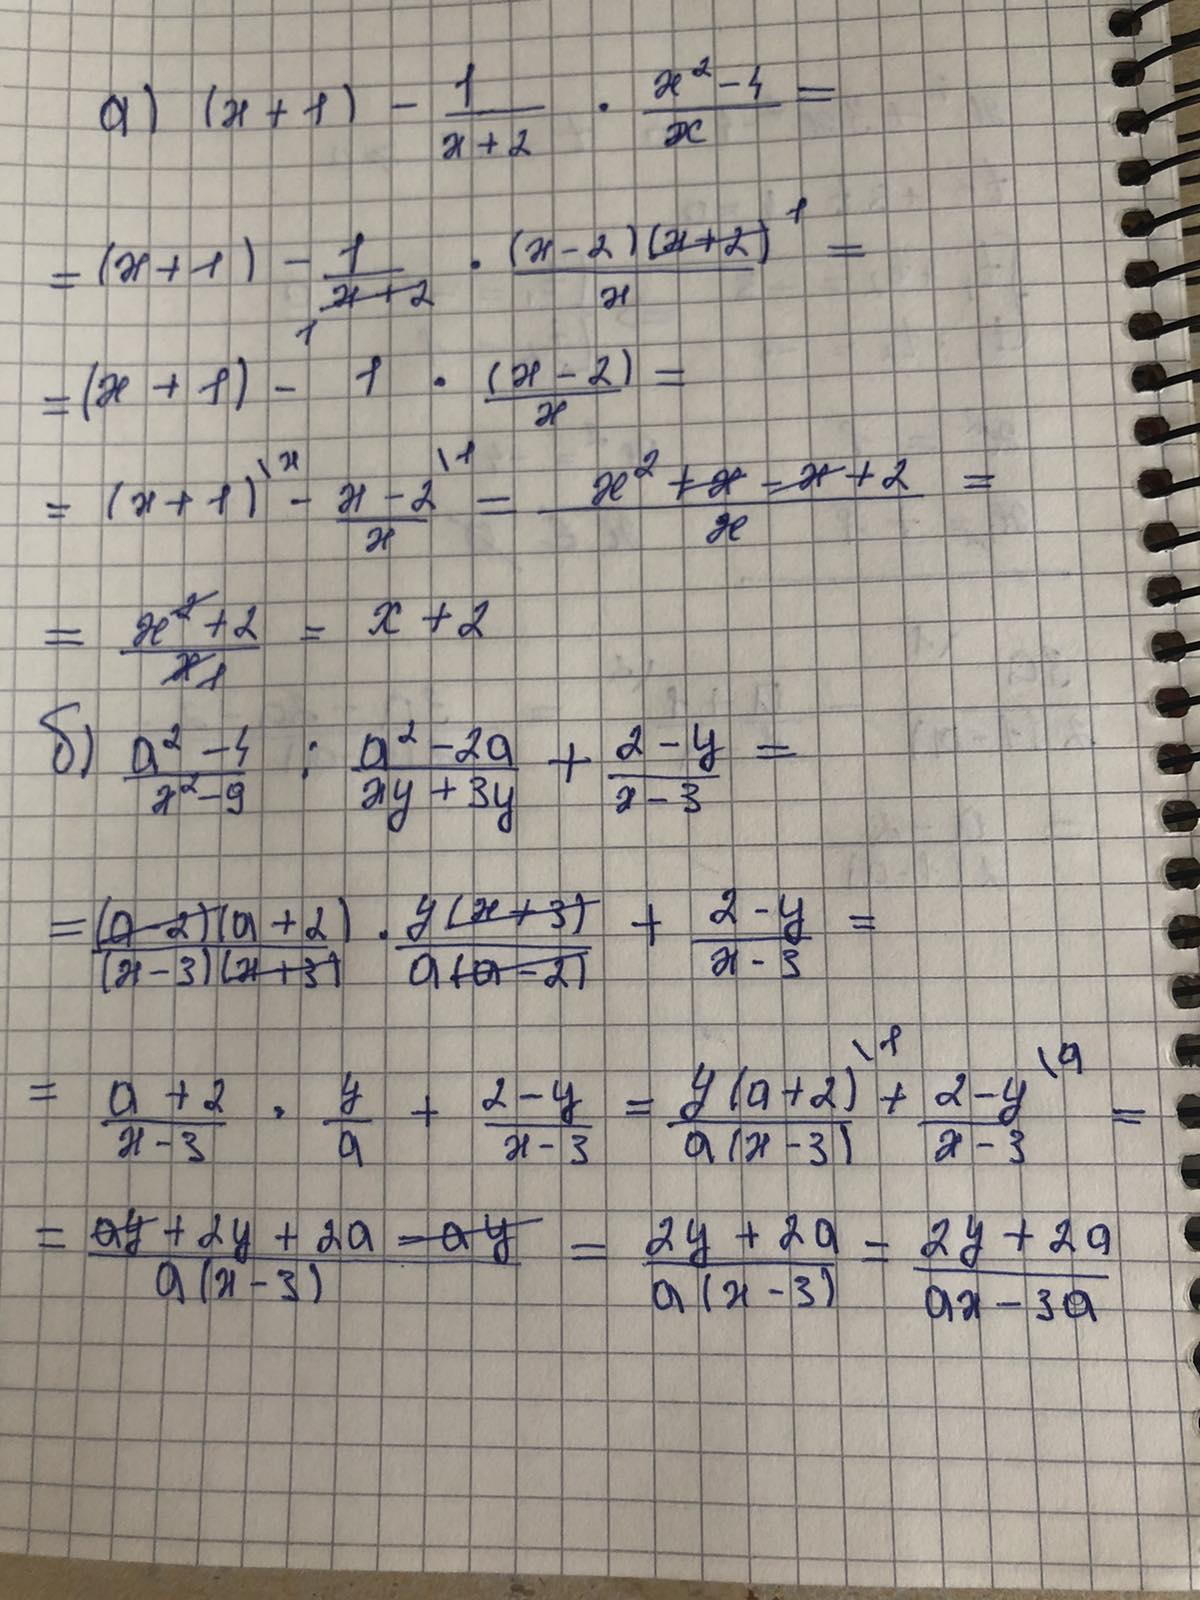 а) (x+1) - 1/(x+2) · (x² - 4)/x =
= (x+1) - 1/(x+2) · (x-2)(x+2)/x =
= (x+1) - 1 · (x-2)/x =
= (x+1)\x - (x-2)/x \1 = (x² + x - x + 2)/x =
= (x² + 2)/x 1 = x + 2
б) (a² - 4)/(x² - 9) : (a² - 2a)/(xy + 3y) + (2-y)/(x-3) =
= (a-2)(a+2)/(x-3)(x+3) · y(x+3)/a(a-2) + (2-y)/(x-3) =
= (a+2)/(x-3) · y/a + (2-y)/(x-3) = y(a+2)/a(x-3) \1 + (2-y)/(x-3) \a =
= (ay + 2y + 2a - ay)/a(x-3) = (2y + 2a)/a(x-3) = (2y + 2a)/(ax - 3a)